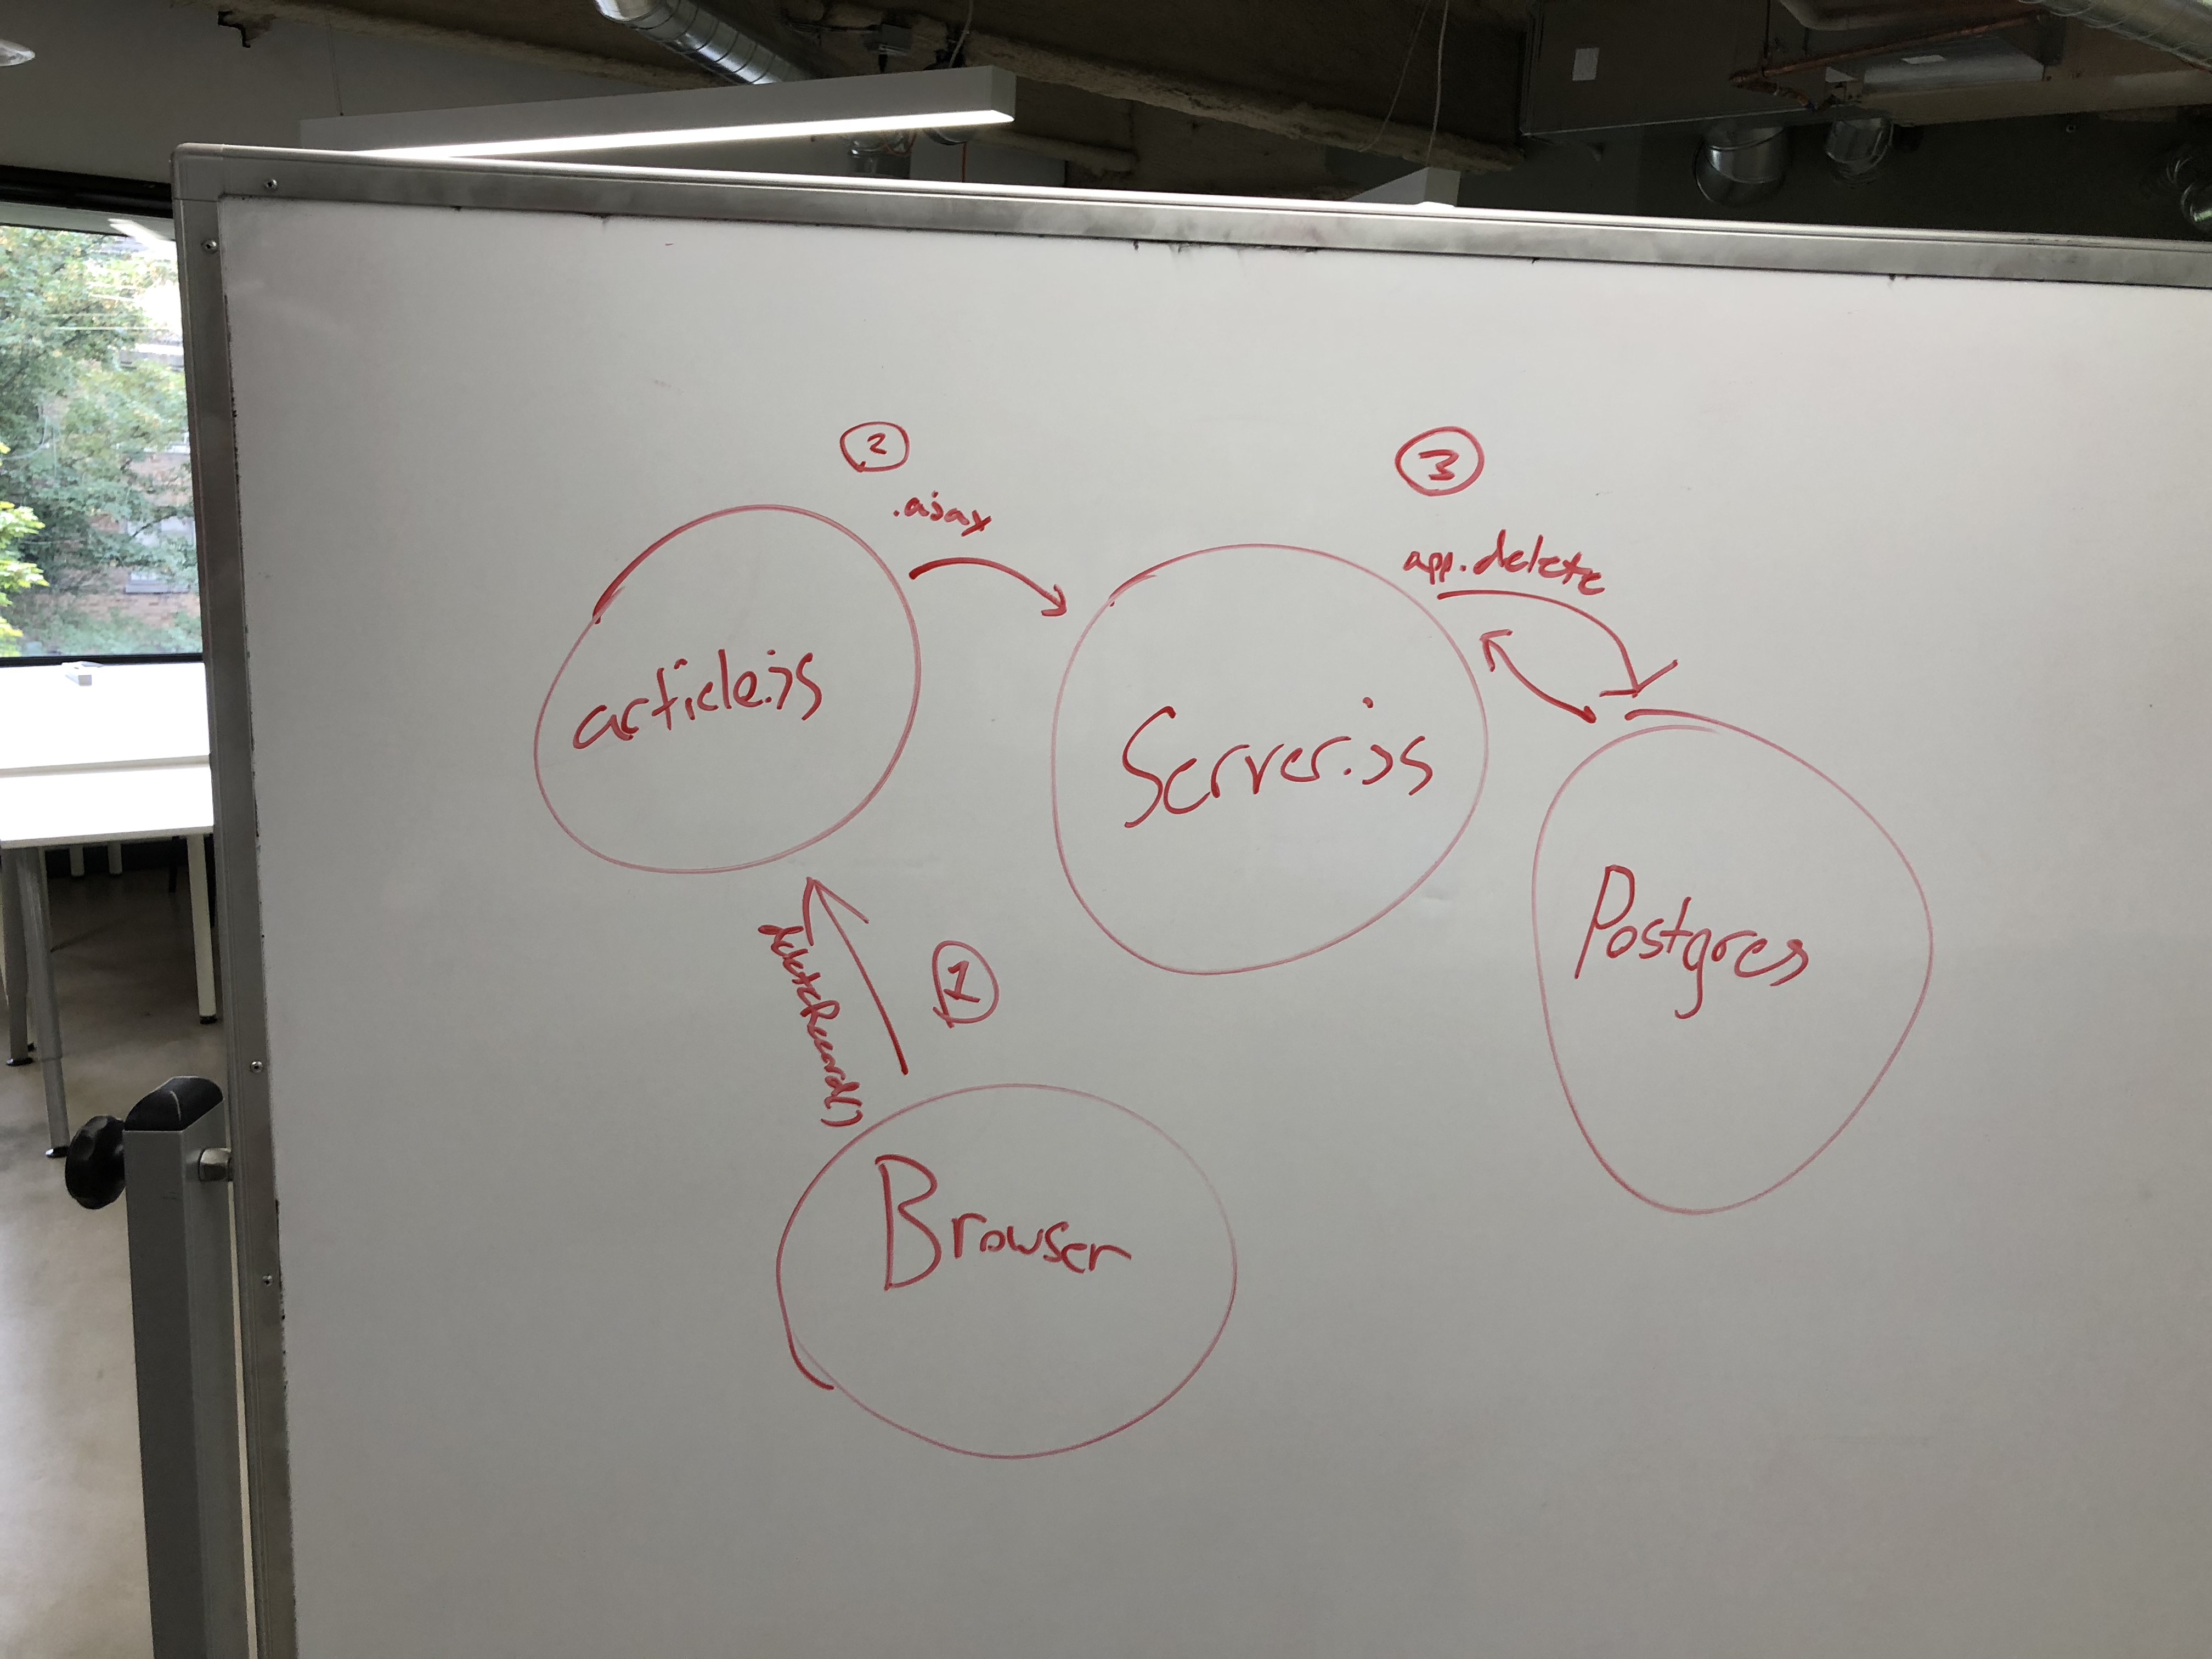 2
.ajax
3
app.delete
article.js
Server.js
Postgres
deleteRecord()
1
Browser